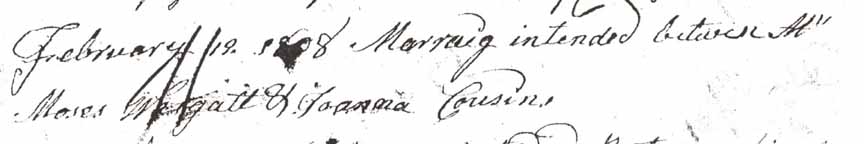 February 12. 1808 Marraig intended between Mr
Moses Wescatt & Joanna Cousins